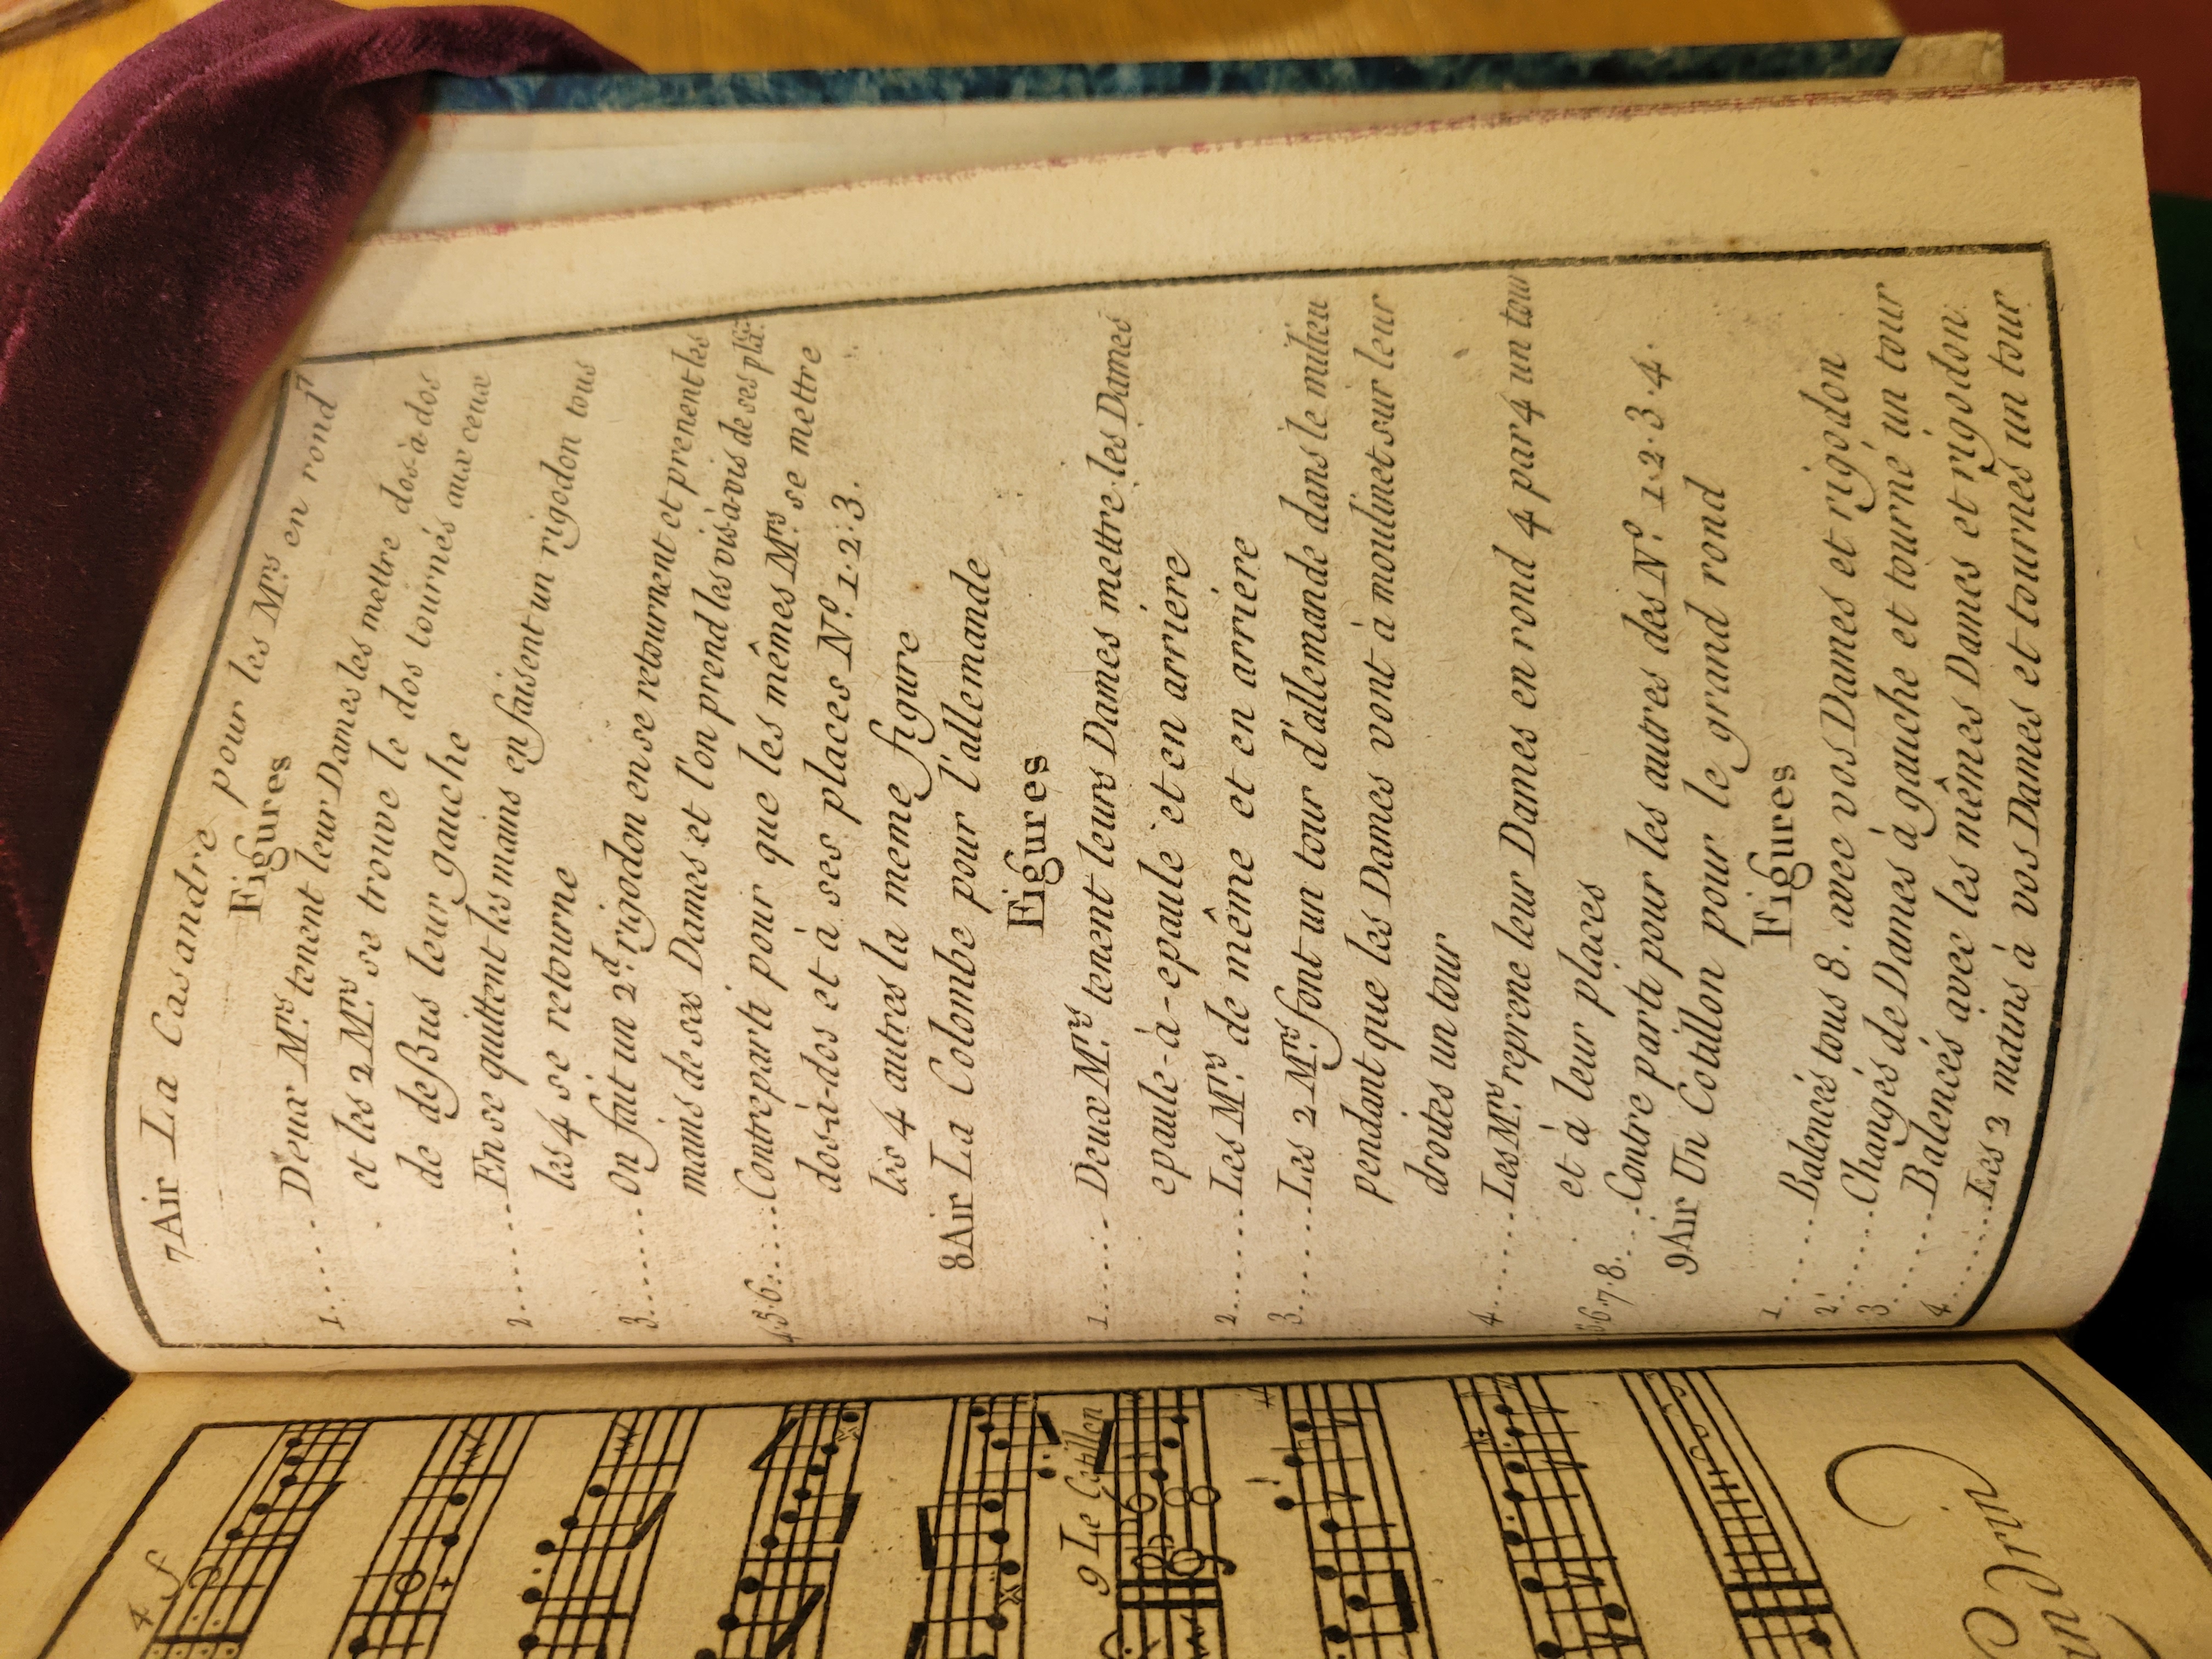 7 Air La Casandre pour les Mrs. en rond
7
Figures
1...... Deux Mrs. tenent leur Dames les mettre dos-à-dos
et les 2 Mrs. se trouve le dos tournés aux ceux
de deßus leur gauche
2...... En se quittent les mains en faisent un rigodon tous
les 4 se retourne
3...... On fait un 2d. rigodon en se retournent et prenent les
mains de ses Dames et l'on prend les vis-à-vis de ses
4.5.6..... Contreparti pour que les mêmes Mrs. se mettre
dos-à-dos et à ses places No. 1.2.3.
les 4 autres la meme figure
8 Air La Colombe pour l'allemande
Figures
1...... Deux Mrs. tenent leurs Dames mettre les Dames
epaule-à-epaule et en arriere
2...... Les Mrs. de même et en arriere
3...... Les 2 Mrs. font un tour d'allemande dans le milieu
pendant que les Dames vont à moulinet sur leur
droites un tour
4...... Les Mrs. reprene leur Dames en rond 4 par 4 un tour
et à leur places
5.6.7.8.... Contre parti pour les autres des No. 1.2.3.4.
9 Air Un Cotillon pour le grand rond
Figures
1...... Balencés tous 8. avec vos Dames et rigodon
2...... Changés de Dames à gauche et tourné un tour
3...... Balencés avec les mêmes Dames et rigodon.
4...... Les 2 mains à vos Dames et tournés un tour
4 f
9 Le Cotillon